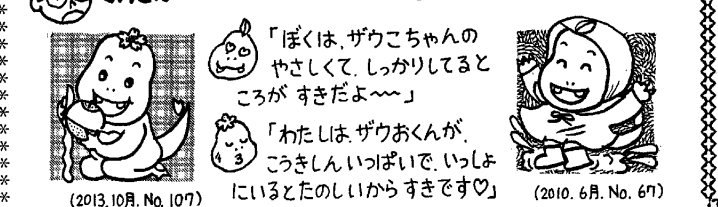 「ぼくは、ザウこちゃんの
やさしくて、しっかりしてると
ころが すきだよ〜〜」
「わたしは、ザウおくんが、
こうきしんいっぱいで、いっしょ
にいるとたのしいから すきです♡」
(2013.10月. No. 107)
(2010. 6月. No. 67)